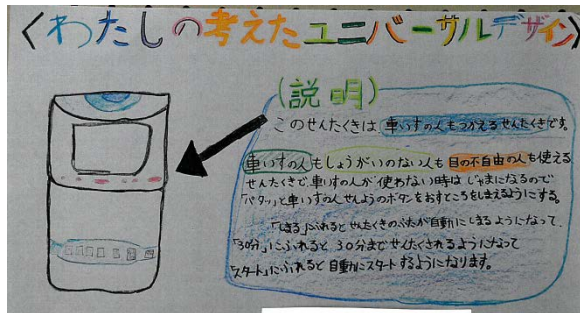 〈わたしの考えたユニバーサルデザイン〉
(説明)
このせんたくきは車いすの人もつかえるせんたくきです。
車いすの人もしょうがいのない人も目の不自由の人も使える
せんたくきで、車いすの人が使わない時はじゃまになるので
「パタッ」と車いすの人せんようのボタンをおすところをしまえるようにする。
「しまる」にふれるとせんたくきのふたが自動にしまるようになって、
「30分」にふれると30分までせんたくされるようになって
「スタート」にふれると自動にスタートするようになります。